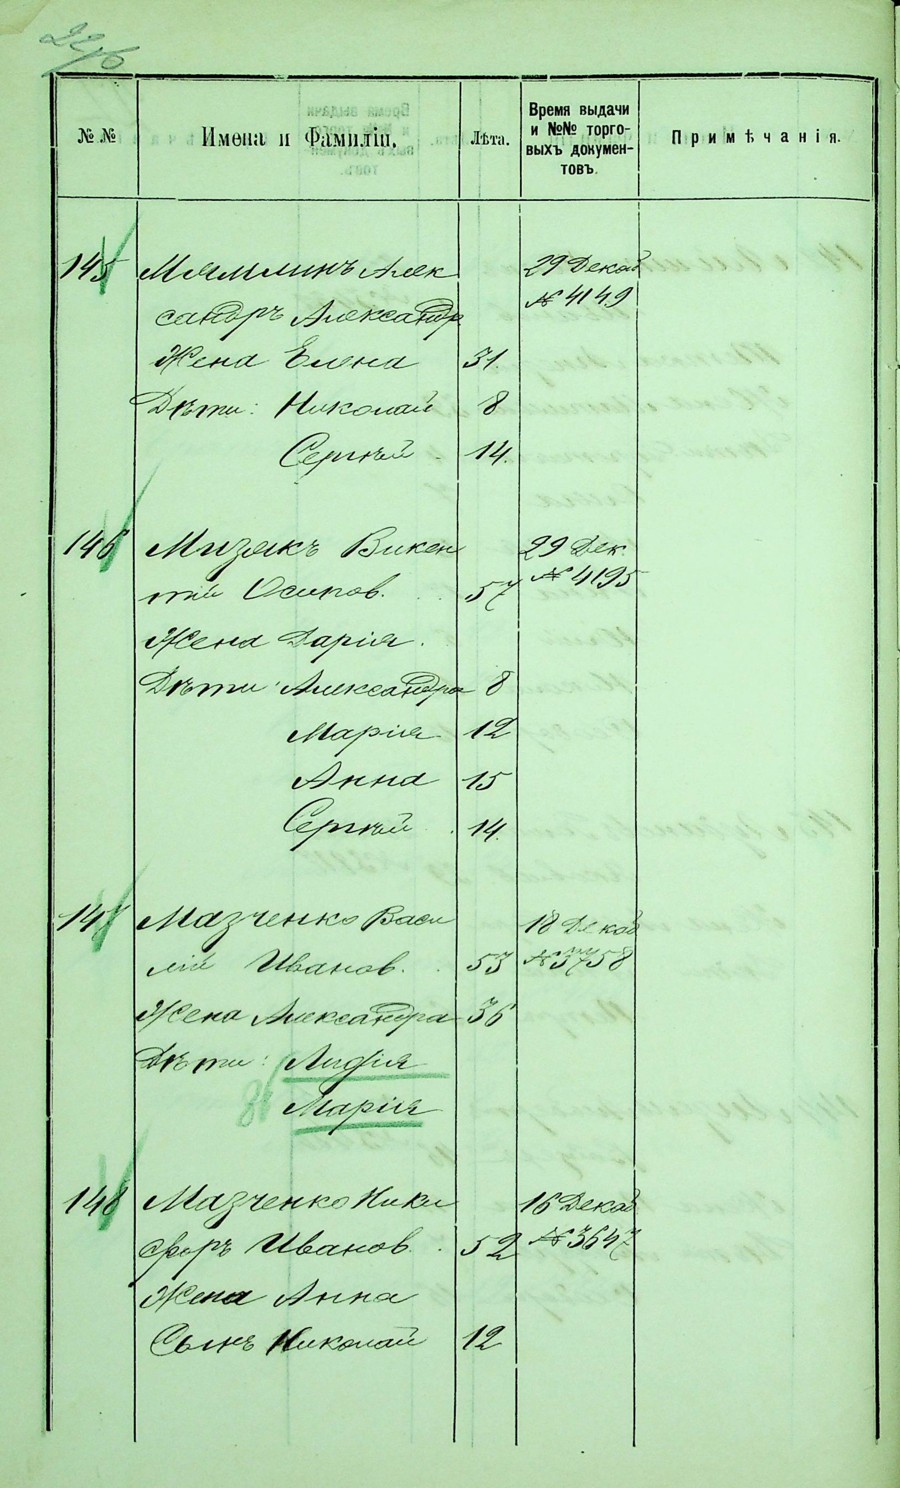 22/6
№№ Имена и Фамиліи. Лѣта. Время выдачи и №№ торго-выхъ докумен-товъ. Примѣчанія.
145 Мямлинъ Алек 29 Декаб
сандръ Александр № 4149
Жена Елена 31.
Дѣти: Николай 8
Сергѣй - 14.
146 Мизякъ Викен 29 Дек.
тій Осипов. 57 № 4195
Жена Дарія.
Дѣти: Александра 8
Марія 12
Анна 15
Сергѣй 14.
147 Мазченко Васи 18 Декаб
лій Иванов. 53 № 3758
Жена Александра 36
Дѣти: Лидія
Марія
148 Мазченко Ники 16 Декаб
форъ Иванов. 52 № 3647
Жена Анна
Сынъ Николай 12